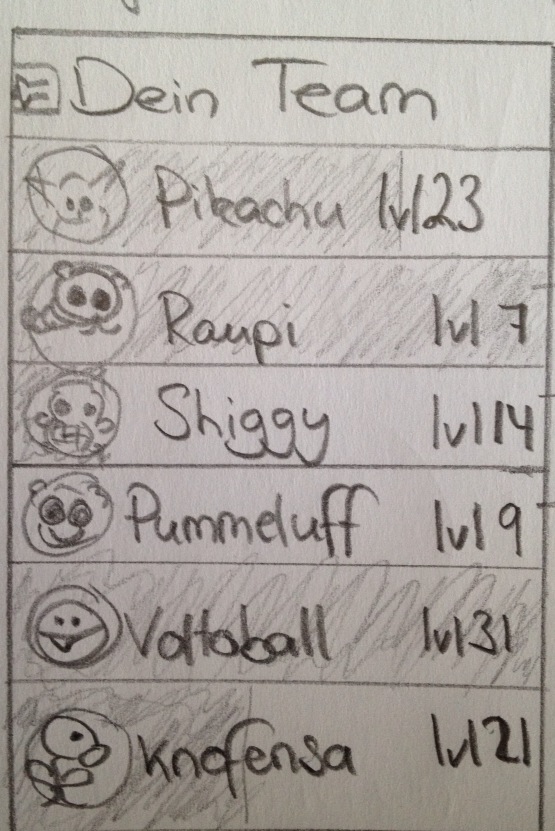 Dein Team
Pikachu lvl 23
Raupi lvl 7
Shiggy lvl 14
Pummeluff lvl 9
Voltoball lvl 31
Knofensa lvl 21